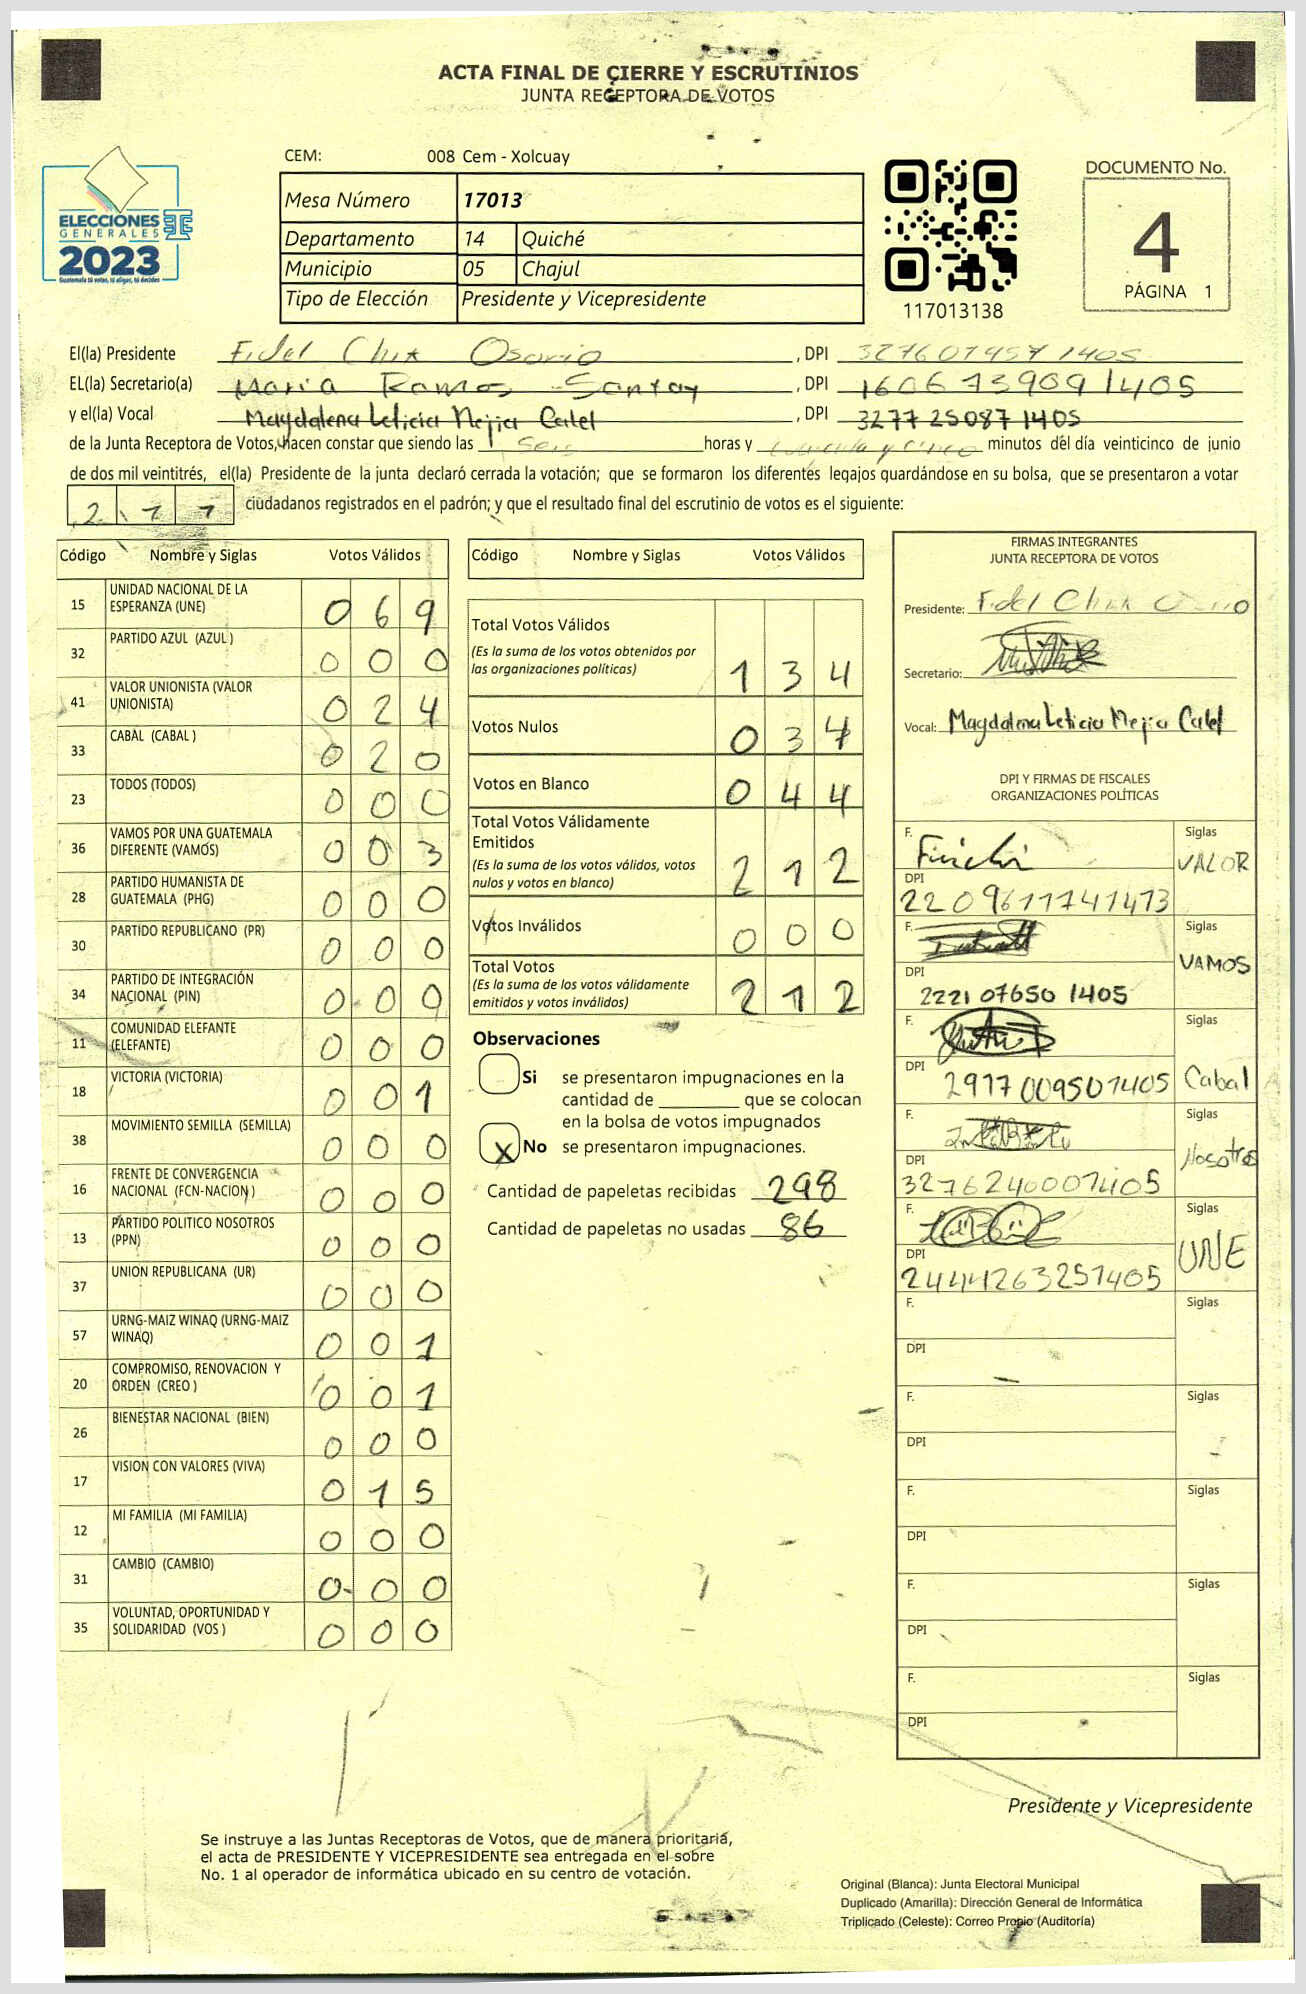 ACTA FINAL DE CIERRE Y ESCRUTINIOS
JUNTA RECEPTORA DE VOTOS
CEM: 008 Cem - Xolcuay
DOCUMENTO No.
4
PÁGINA 1
ELECCIONES
GENERALES
2023
Guatemala tú votas, tú eliges, tú decides
Mesa Número 17013
Departamento 14 Quiché
Municipio 05 Chajul
Tipo de Elección Presidente y Vicepresidente
117013138
El(la) Presidente Fidel Chix Osorio , DPI 3276074571405
EL(la) Secretario(a) Maria Ramos Santay , DPI 1606739091405
y el(la) Vocal Magdalena Leticia Mejia Catel , DPI 3277250871405
de la Junta Receptora de Votos, hacen constar que siendo las seis horas y cinco minutos del día veinticinco de junio
de dos mil veintitrés, el(la) Presidente de la junta declaró cerrada la votación; que se formaron los diferentes legajos guardándose en su bolsa, que se presentaron a votar
2 ciudadanos registrados en el padrón; y que el resultado final del escrutinio de votos es el siguiente:
Código Nombre y Siglas Votos Válidos
15 UNIDAD NACIONAL DE LA ESPERANZA (UNE) 0 6 9
32 PARTIDO AZUL (AZUL ) 0 0 0
41 VALOR UNIONISTA (VALOR UNIONISTA) 0 2 4
33 CABAL (CABAL ) 0 2 0
23 TODOS (TODOS) 0 0 0
36 VAMOS POR UNA GUATEMALA DIFERENTE (VAMOS) 0 0 3
28 PARTIDO HUMANISTA DE GUATEMALA (PHG) 0 0 0
30 PARTIDO REPUBLICANO (PR) 0 0 0
34 PARTIDO DE INTEGRACIÓN NACIONAL (PIN) 0 0 0
11 COMUNIDAD ELEFANTE (ELEFANTE) 0 0 0
18 VICTORIA (VICTORIA) 0 0 1
38 MOVIMIENTO SEMILLA (SEMILLA) 0 0 0
16 FRENTE DE CONVERGENCIA NACIONAL (FCN-NACION ) 0 0 0
13 PARTIDO POLITICO NOSOTROS (PPN) 0 0 0
37 UNION REPUBLICANA (UR) 0 0 0
57 URNG-MAIZ WINAQ (URNG-MAIZ WINAQ) 0 0 1
20 COMPROMISO, RENOVACION Y ORDEN (CREO ) 0 0 1
26 BIENESTAR NACIONAL (BIEN) 0 0 0
17 VISION CON VALORES (VIVA) 0 1 5
12 MI FAMILIA (MI FAMILIA) 0 0 0
31 CAMBIO (CAMBIO) 0 0 0
35 VOLUNTAD, OPORTUNIDAD Y SOLIDARIDAD (VOS ) 0 0 0
Código Nombre y Siglas Votos Válidos
Total Votos Válidos
(Es la suma de los votos obtenidos por
las organizaciones políticas) 1 3 4
Votos Nulos 0 3 4
Votos en Blanco 0 4 4
Total Votos Válidamente
Emitidos
(Es la suma de los votos válidos, votos
nulos y votos en blanco) 2 1 2
Votos Inválidos 0 0 0
Total Votos
(Es la suma de los votos válidamente
emitidos y votos inválidos) 2 1 2
Observaciones
Si se presentaron impugnaciones en la
cantidad de ________ que se colocan
en la bolsa de votos impugnados
X No se presentaron impugnaciones.
Cantidad de papeletas recibidas 298
Cantidad de papeletas no usadas 86
FIRMAS INTEGRANTES
JUNTA RECEPTORA DE VOTOS
Presidente: Fidel Chix Osorio
Secretario:
Vocal: Magdalena Leticia Mejia Catel
DPI Y FIRMAS DE FISCALES
ORGANIZACIONES POLÍTICAS
F. Siglas
VALOR
DPI
2209611741413
F. Siglas
VAMOS
DPI
2221 07650 1405
F. Siglas
DPI
2917009501405 Cabal
F. Siglas
Nosotros
DPI
3276240001405
F. Siglas
UNE
DPI
2444263251405
F. Siglas
DPI
F. Siglas
DPI
F. Siglas
DPI
F. Siglas
DPI
F. Siglas
DPI
Presidente y Vicepresidente
Se instruye a las Juntas Receptoras de Votos, que de manera prioritaria,
el acta de PRESIDENTE Y VICEPRESIDENTE sea entregada en el sobre
No. 1 al operador de informática ubicado en su centro de votación.
Original (Blanca): Junta Electoral Municipal
Duplicado (Amarilla): Dirección General de Informática
Triplicado (Celeste): Correo Propio (Auditoría)